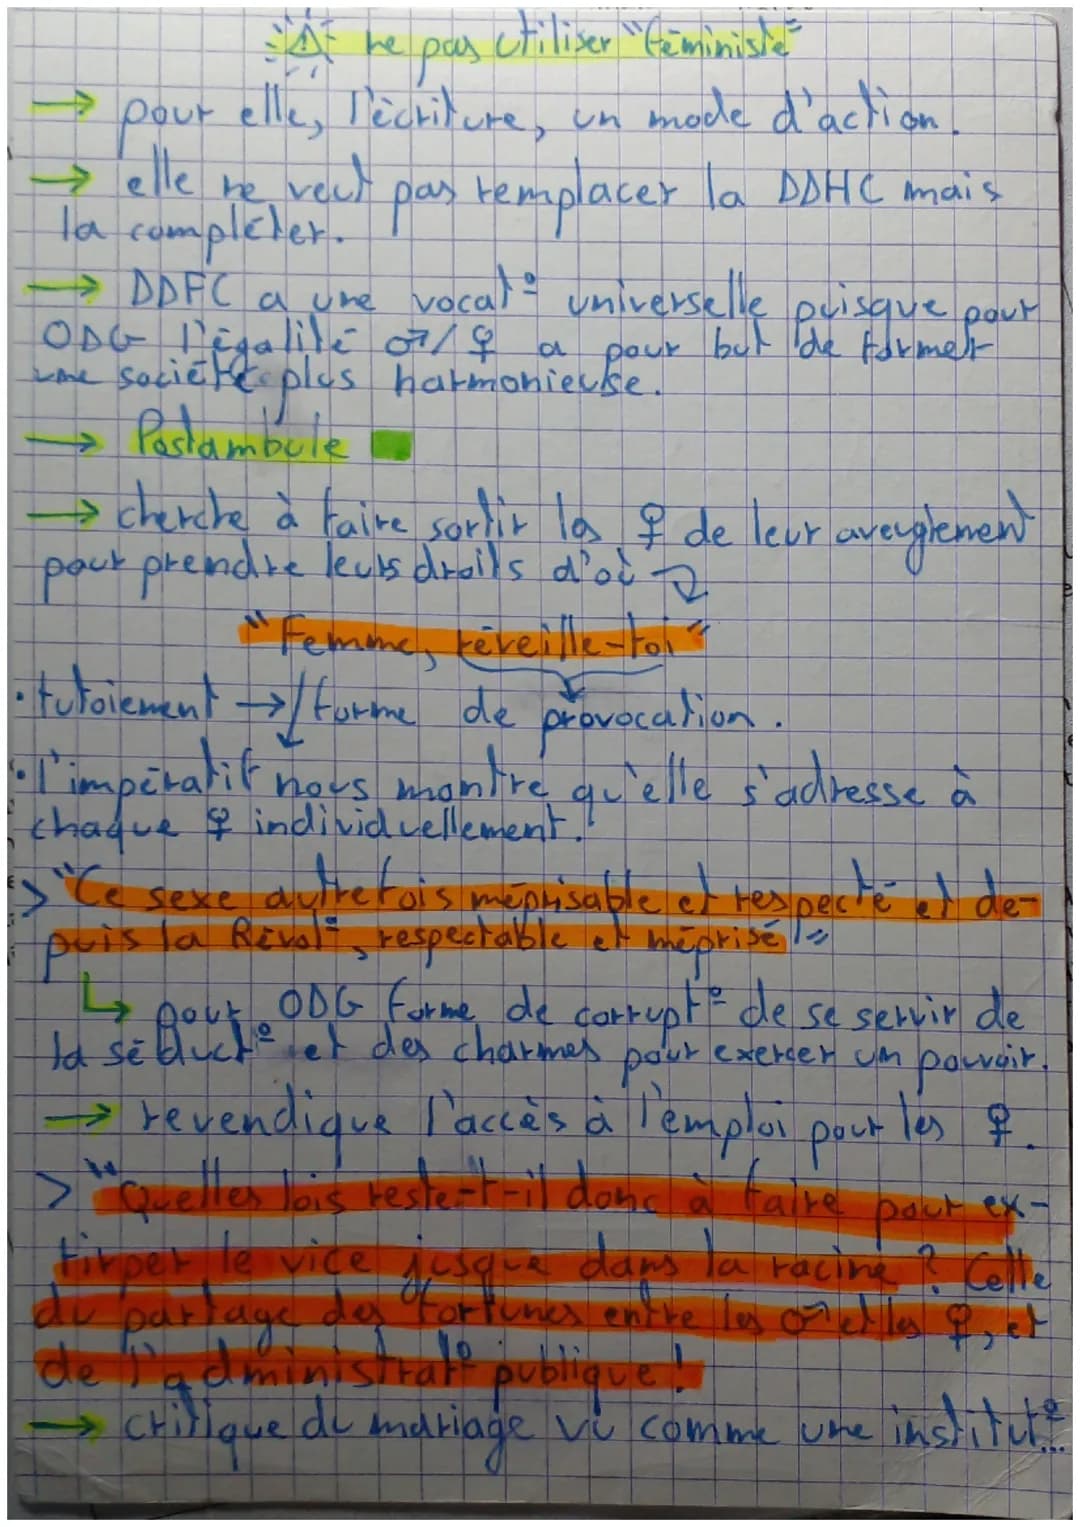 ⚠ ne pas utiliser "féministe"
→ pour elle, l'écriture, un mode d'action.
→ elle ne veut pas remplacer la DDHC mais
la compléter.
→ DDFC a une vocat° universelle puisque pour
ODG l'égalité ♂/♀ a pour but de former
une société plus harmonieuse.
→ Postambule
→ cherche à faire sortir les ♀ de leur aveuglement
pour prendre leurs droits d'où ↴
"Femme, réveille-toi"
• tutoiement → / forme de provocation.
• l'impératif nous montre qu'elle s'adresse à
chaque ♀ individuellement.
> "Ce sexe autrefois méprisable et respecté et de-
puis la Révol°, respectable et méprisé !"
↳ pour ODG forme de corrupt° de se servir de
la séduct° et des charmes pour exercer un pouvoir.
→ revendique l'accès à l'emploi pour les ♀.
> "Quelles lois reste-t-il donc à faire pour ex-
tirper le vice jusque dans la racine ? Celle
du partage des fortunes entre les ♂ et les ♀, et
de l'administrat° publique !
→ critique du mariage vu comme une institut°...